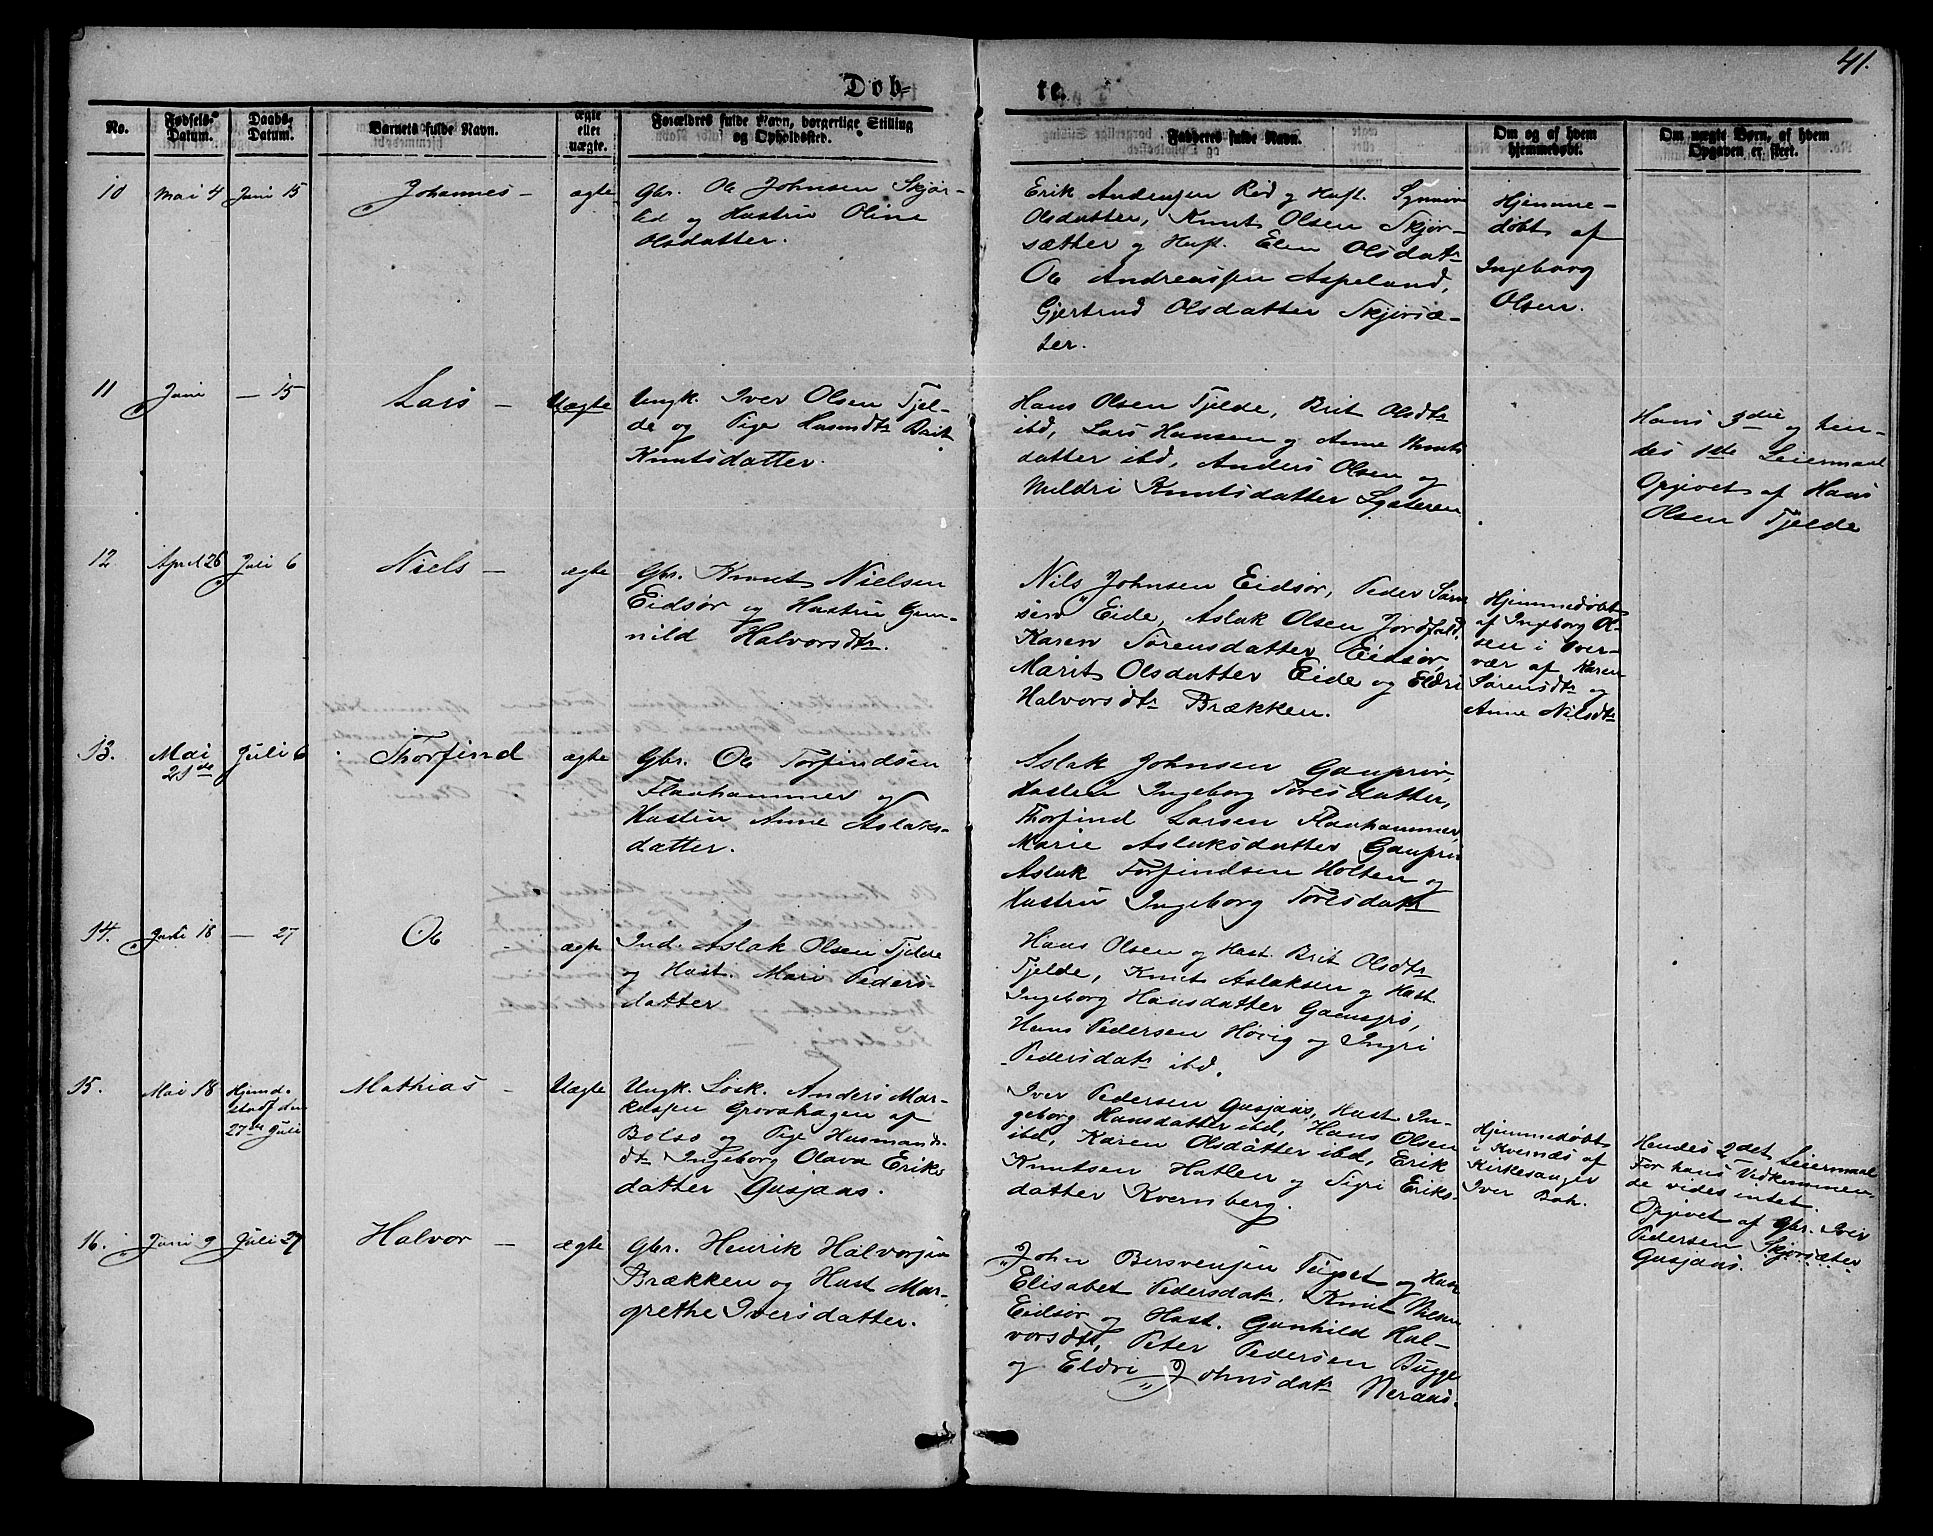 41.
Døb-
te.
No.
Fødsels-
Datum.
Daabs-
Datum.
Barnets fulde Navn.
ægte
eller
uægte.
Forældres fulde Navn, borgerlige Stilling
og Opholdssted.
Fadderes fulde Navn.
Om og af hvem
hjemmedøbt.
Om uægte Børn, af hvem
Opgaven er skeet.
10 Mai 4 Juni 15 Johannes - ægte
Gbr. Ole Johnsen Skjør-
og Hustru Oline
Olsdatter.
Erik Andersen Rød g Hust. Synnøv
Olsdatter, Knut Olsen Skjør-
sætter g Hust. Elen Olsdatr
Ole Andreassen Aspeland,
Gjertrud Olsdatter Skjørsæ-
ter.
Hjemme-
døbt af
Ingeborg
Olsen.
11 Juni — 15 Lars - Uægte
Ungk. Iver Olsen Tjel-
de og Pige Husmdtr Brit
Knutsdatter.
Hans Olsen Tjelde, Brit Olsdtr
ibd, Lars Hansen g Anne Knuts
datter ibd, Anders Olsen og
Knutsdatter
Hans 3die og hen-
des 1ste Leiermaal
Opgivet af Hans
Olsen Tjelde
12. April 26 Juli 6 Niels - ægte
Gbr. Knut Nielsen
Eidsør og Hustru Gun-
nild Halvorsdtr.
Nils Johnsen Eidsør, Peder Søren
sen Eide, Aslak Olsen Jordfald,
Karen Sørensdatter Eidsør,
Marit Olsdatter Eide og Eldri
Halvorsdtr Brækken.
Hjemmedøbt
af Ingeborg Ol-
sen i Over-
vær af Karen
Sørensdtr og
Anne Nilsdtr
13. Mai 21de Juli 6 Thorfind ægte
Gbr. Ole Torfindsen
Flaahammer og
Hustru Anne Aslaks-
datter.
Aslak Johnsen Gauprør,
Hustru Ingeborg Toresdatter,
Thorfind Larsen Flaahammer,
Marie Aslaksdatter Gauprø
Aslak Torfindsen Holten og
Hustru Ingeborg Toresdatr
14. Juni 18 — 27 Ole ægte
Ind. Aslak Olsen Tjelde
og Hust. Mari Peders-
datter
Hans Olsen og Hust. Brit Olsdtr
Tjelde, Knut Aslaksen og Hust
Ingeborg Hansdatter
Hans Pedersen Høvig og Ingri
Pedersdatr ibd.
15. Mai 18 Hjemd.
stadf den
27de Juli Mathias - Uægte
Ungk. Løsk. Anders Mar-
kussen Grovahagen af
Bolsø og Pige Husmands-
dtr Ingeborg Olava Eriks
datter Gusjaas.
Iver Pedersen Gusjaas, Hust In-
geborg Hansdatter ibd, Hans Olsen
ibd, Karen Olsdatter ibd, Erik
Knutsen Hatlen og Sigri Eriks-
datter Kvernberg.
Hjemmedøbt
i Kvernæs af
Kirkesanger
Iver Boh.
Hendes 2det Leiermaal
For hans Vidkommen
de vides intet.
Opgivet af Gbr. Iver
Pedersen Skjørsæter
Gusjaas.
16. Juni 9 Juli 27 Halvor - ægte
Gbr. Henrik Halvorsen
Brækken og Hust Mar-
grethe Iversdatter.
John Bersvensen Tuset og Hust
Elisabet Pedersdatr. Knut
Eidsør og Hust. Gunhild Hal-
vorsdtr, Peter Pedersen Bugge
og Eldri Johnsdatr Neraas.